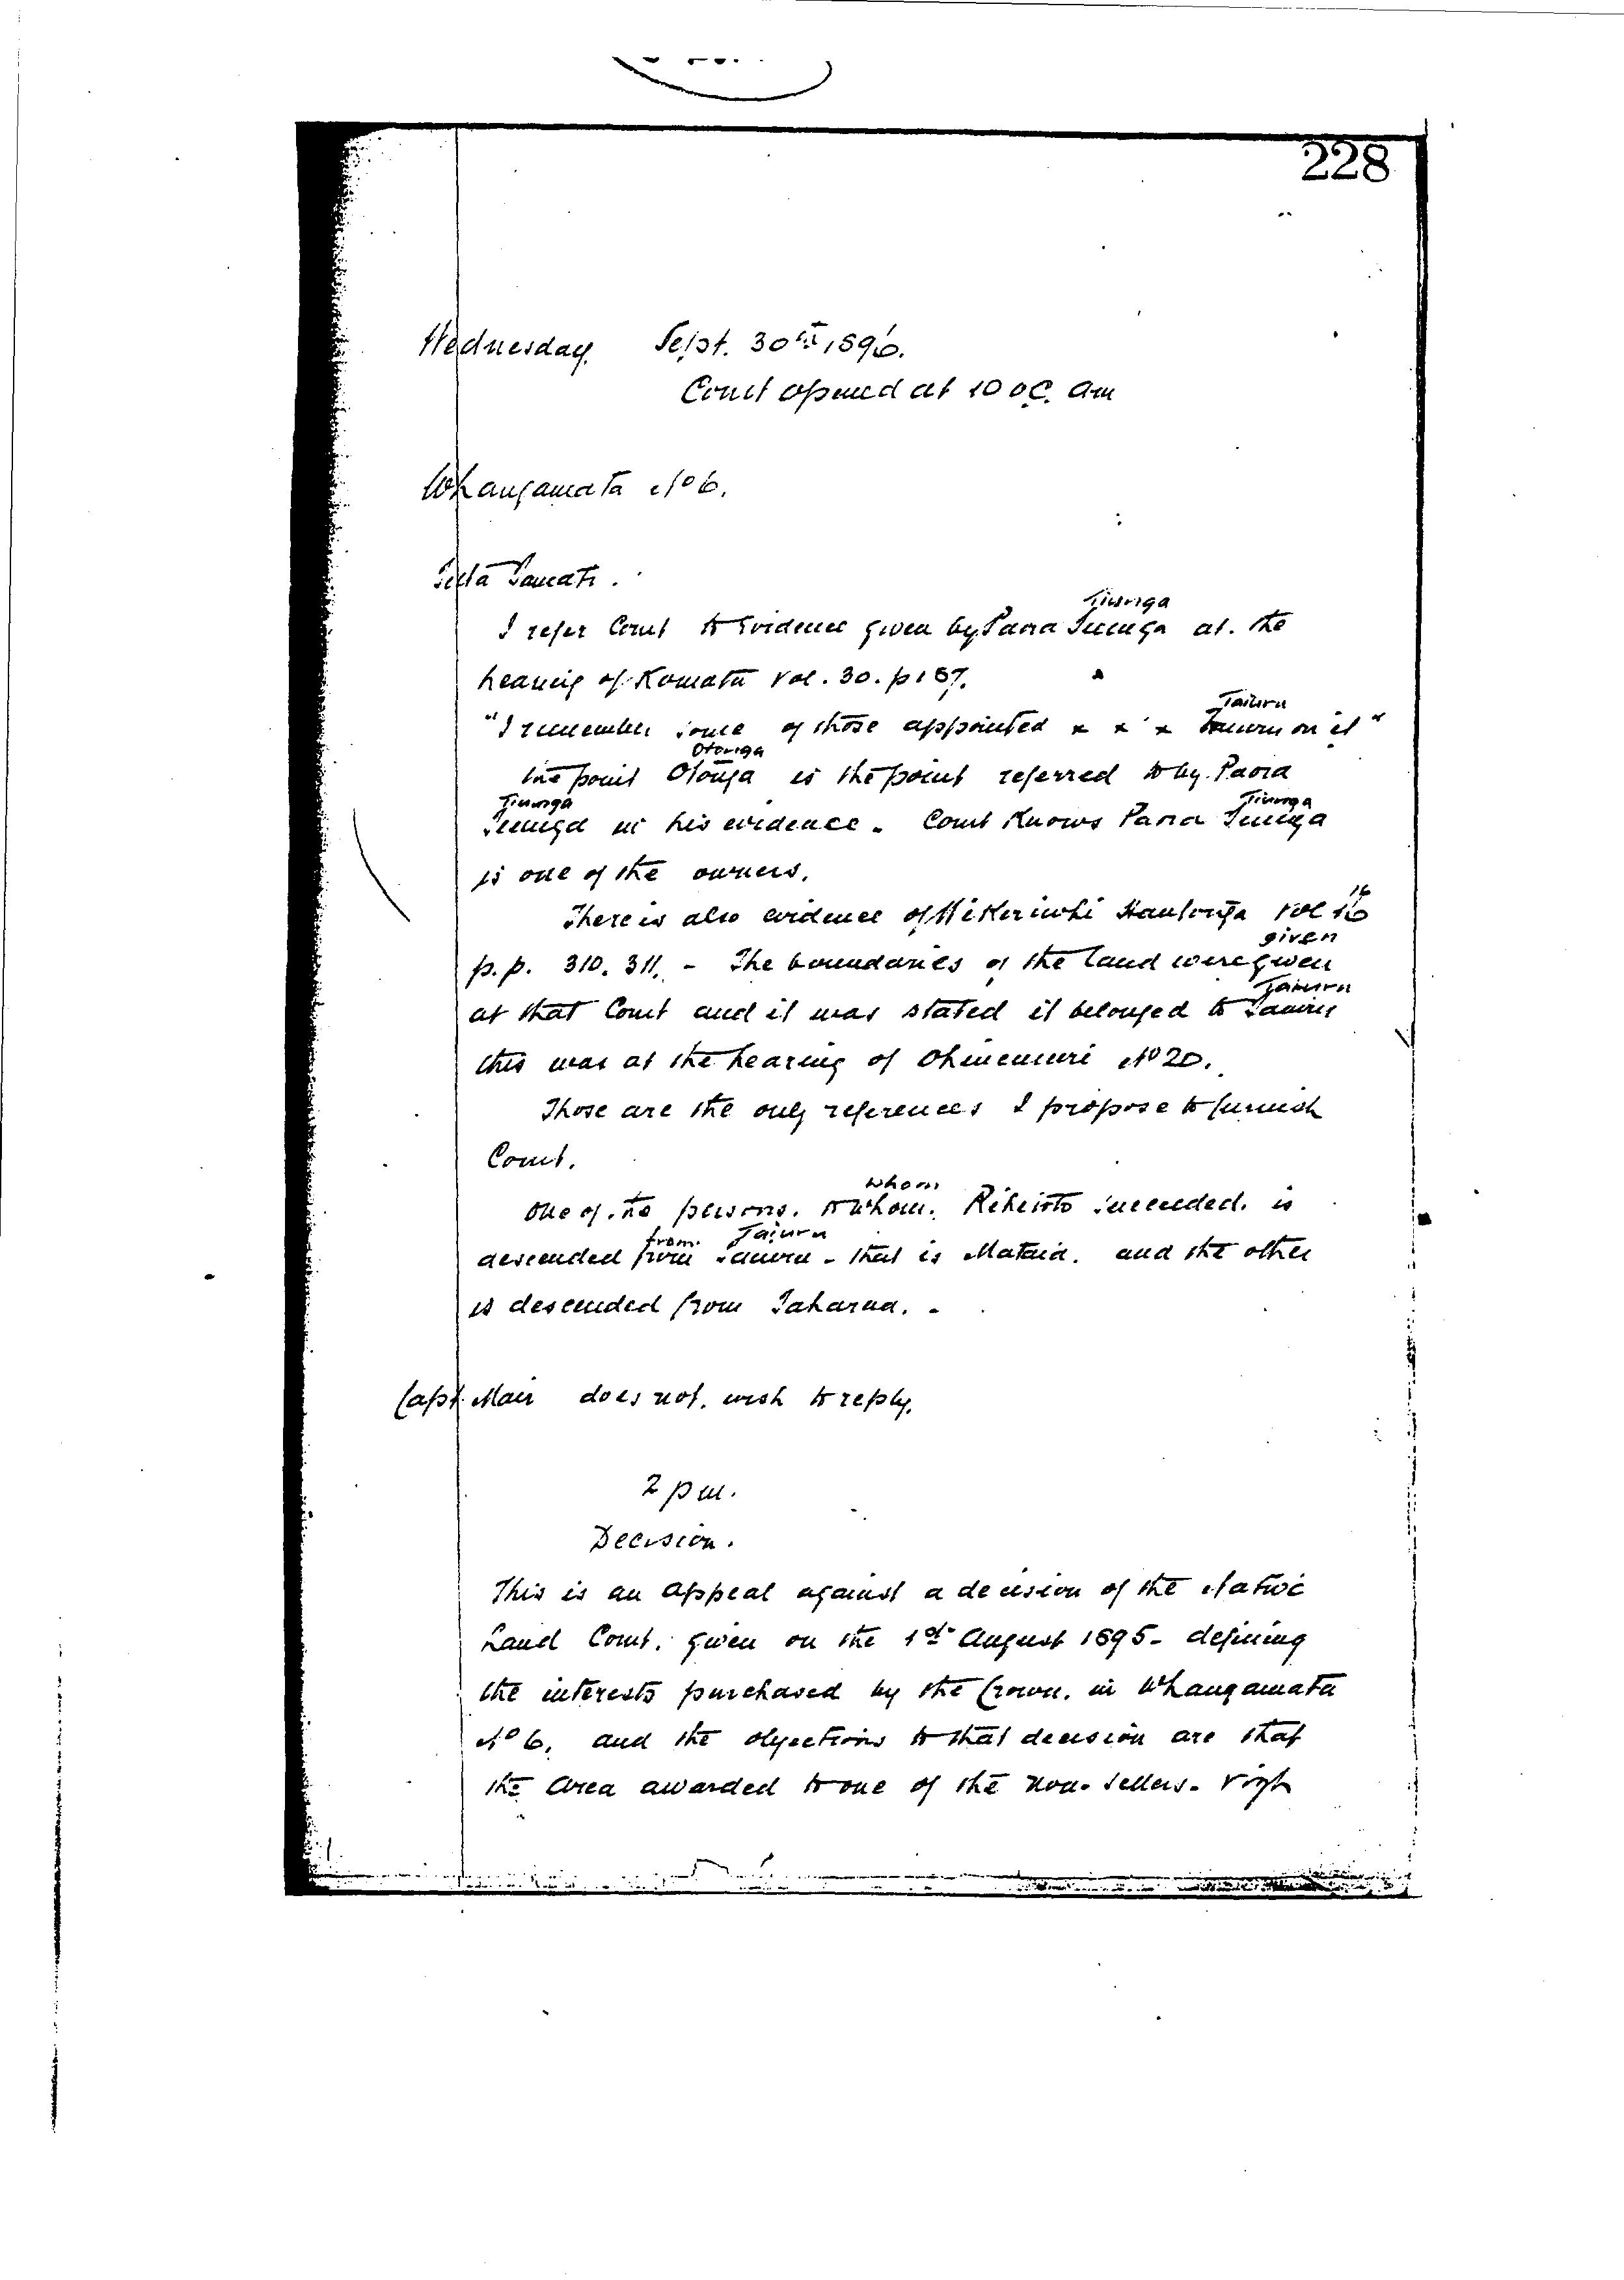 228
Wednesday. Sept. 30th, 1896.
Court opened at 10 oC. am
Whangamata No 6.
Tamati.
Tiunga
I refer Court to Evidence given by Paora Tiunga at. the
hearing of Komata Vol. 30. p 157.
Taiuru
"I remember some of those appointed x x x Taiuru on it"
Otonga
the point Otonga is the point referred to by. Paora
Tiunga Tiunga
Tiunga in his evidence. Court Knows Paora Tiunga
is one of the owners.
16
There is also evidence of Wikiriwhi Hautonga Vol 16
given
p.p. 310. 311. - The boundaries of the land were given
Taiuru
at that Court and it was stated it belonged to Taiuru
this was at the hearing of Ohinemuri No 20.
Those are the only references I propose to furnish
Court.
whom
One of. the persons. to whom. succeeded. is
from. Taiuru
descended from Taiuru - that is Mataia. and the other
is descended from Taharua. -
Capt. Mair does not. wish to reply.
2 pm.
Decision.
This is an appeal against a decision of the Native
Land Court. given on the 1st August 1895 - defining
the interests purchased by the Crown. in Whangamata
No 6. and the objections to that decision are that
the Area awarded to one of the non-sellers.